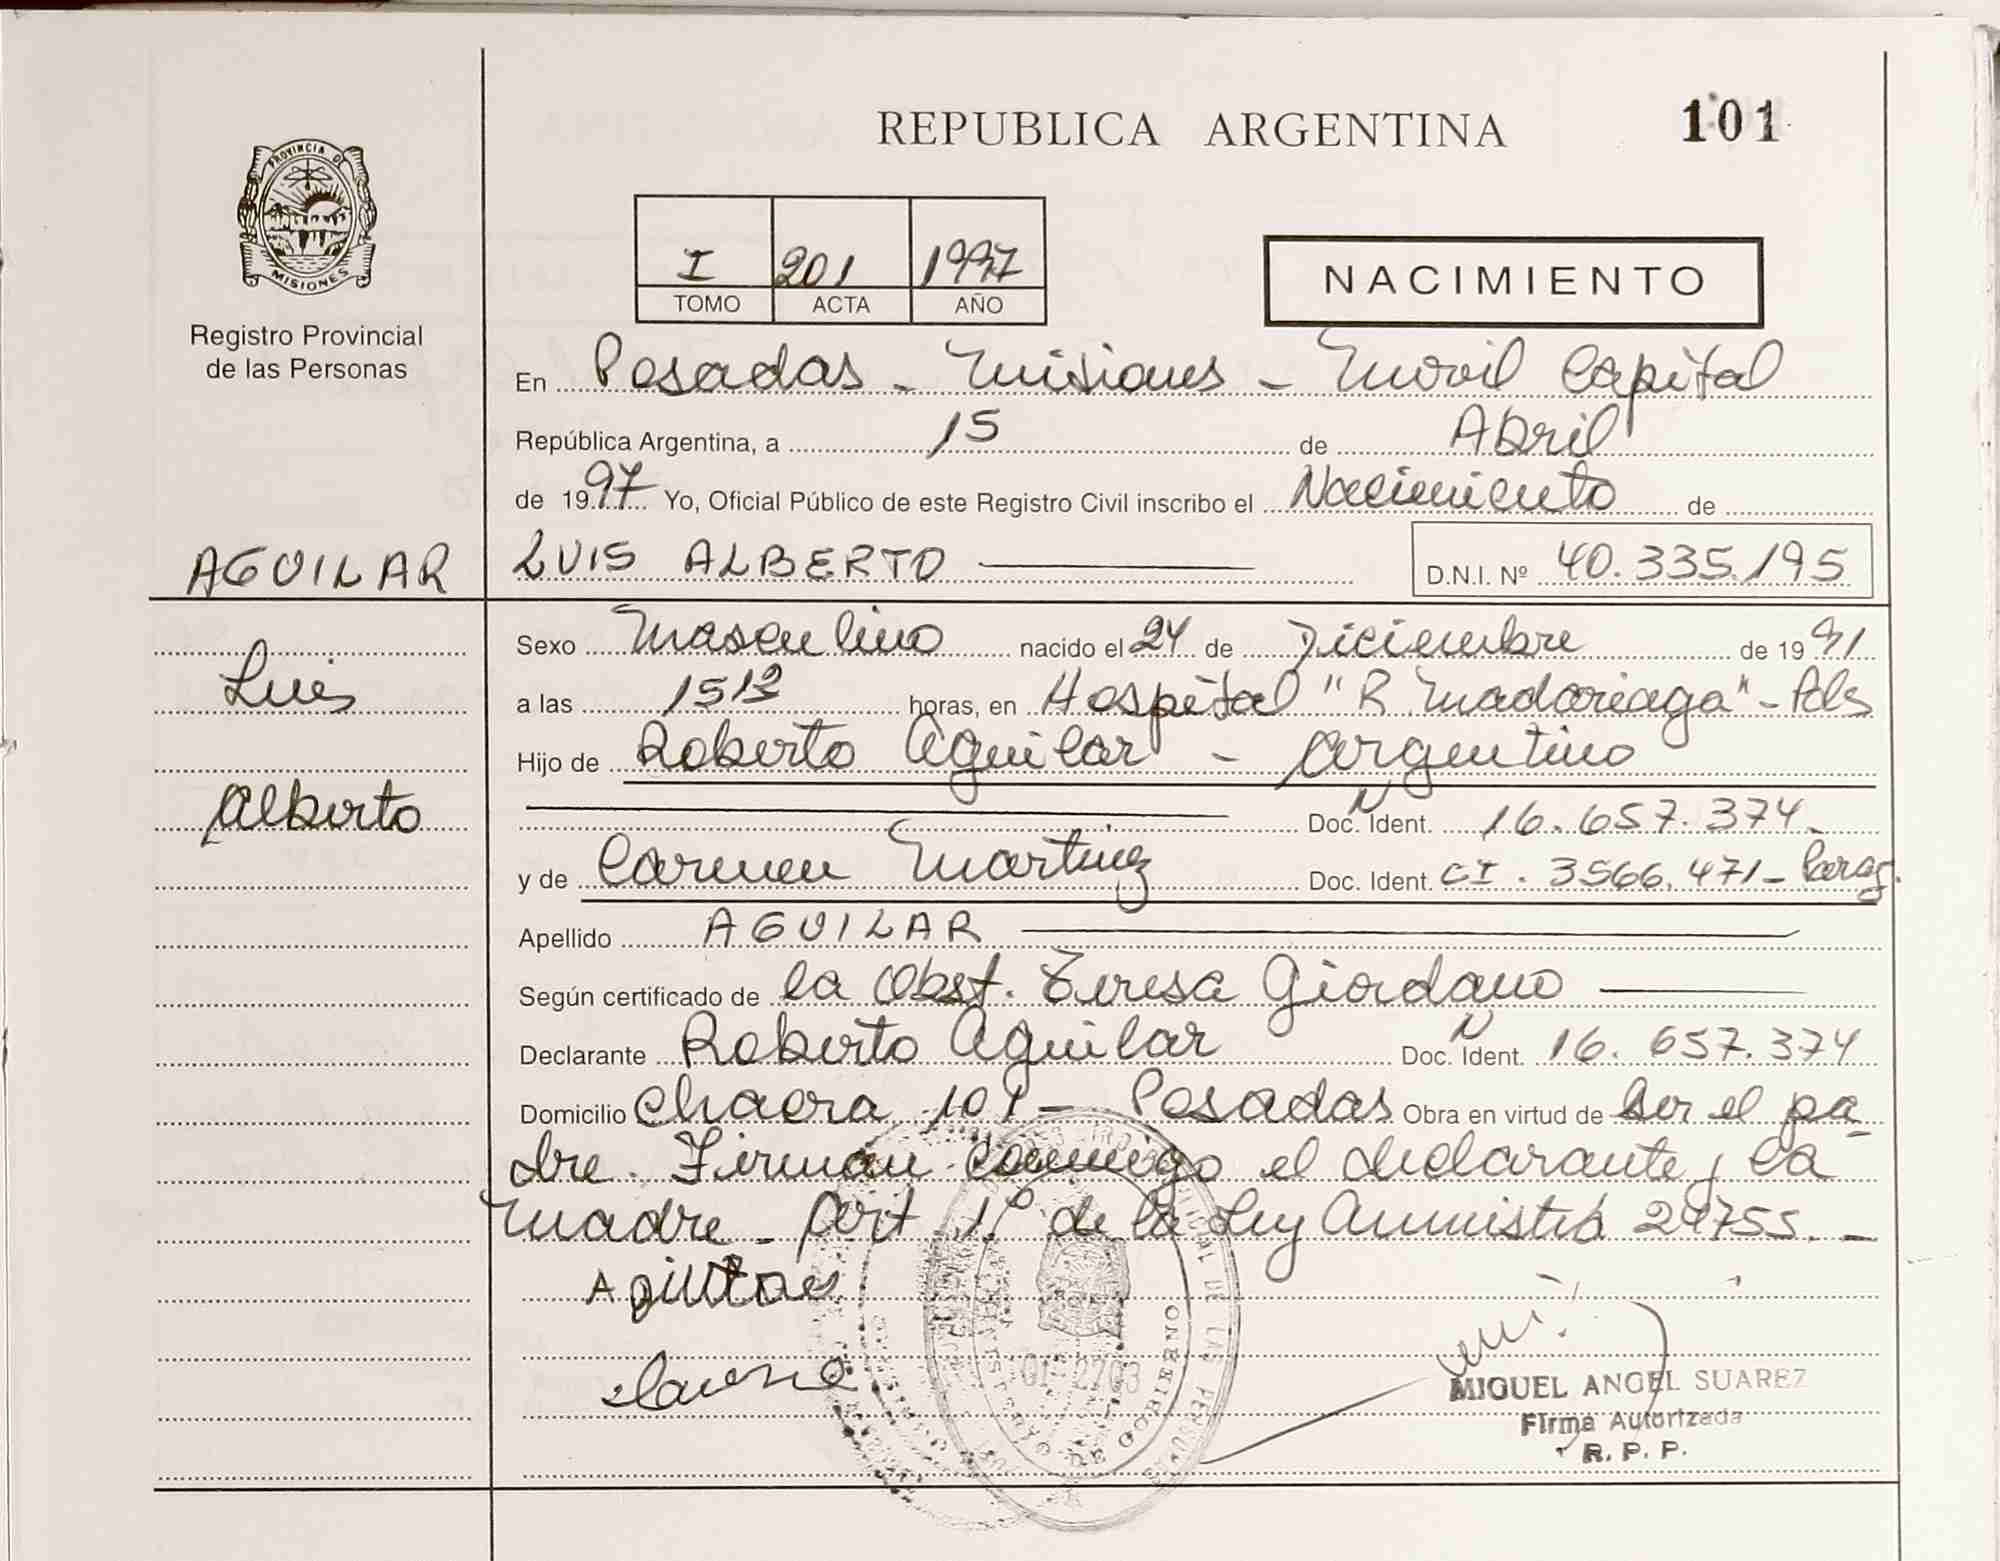 REPUBLICA ARGENTINA
101
PROVINCIA DE
MISIONES
Registro Provincial
de las Personas
I 201 1997
TOMO ACTA AÑO
NACIMIENTO
En Posadas - Misiones - Movil Capital
República Argentina, a 15 de Abril
de 1997 Yo, Oficial Público de este Registro Civil inscribo el Nacimiento de
AGUILAR LUIS ALBERTO D.N.I. Nº 40.335.195
Sexo Masculino nacido el 24 de Diciembre de 1991
Luis
a las 15 horas, en Hospital "R. Madariaga" - Pds
Hijo de Roberto Aguilar - Argentino
Alberto
Doc. N Ident. 16.657.374-
y de Carmen Martinez Doc. Ident. CI. 3566.471- Parag.
Apellido AGUILAR
Según certificado de la Obst. Teresa Giordano
Declarante Roberto Aguilar Doc. N Ident. 16.657.374
Domicilio Chacra 101 - Posadas Obra en virtud de ser el pa
dre. Firman conmigo el declarante y la
madre - Art 1º de la Ley Amnistia 24755. -
MINISTERIO DE GOBIERNO
MIGUEL ANGEL SUAREZ
Firma Autorizada
R. P. P.